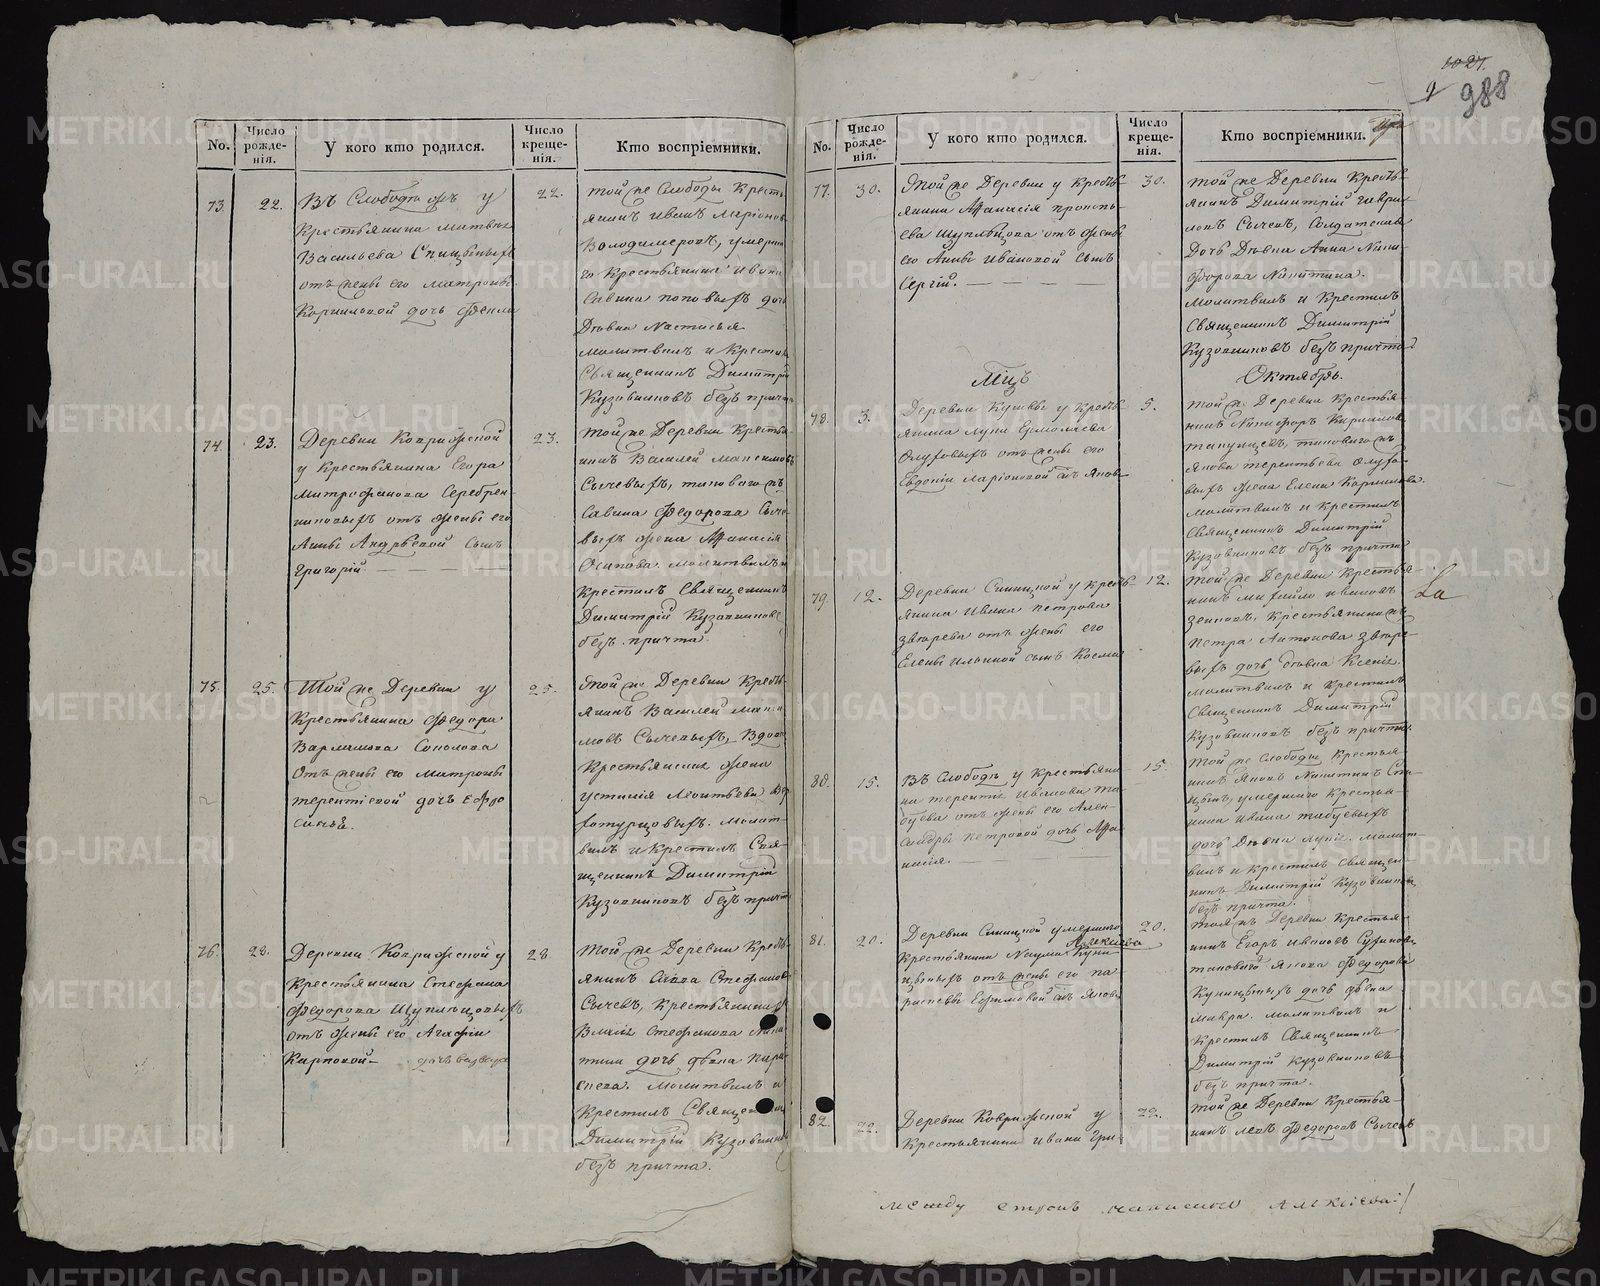 1027.
9 988
No.
Число рожде-нія.
У кого кто родился.
Число креще-нія.
Кто воспріемники.
73.
22.
Въ Слободѣ у
Крестьянина Матвѣя
Васильева Спицыныхъ
отъ жены его Матроны
Корниловой дочь Фекла
22.
той же Слободы Кресть
янинъ Иванъ Ларіонов
Володимеровъ, умерша
го Крестьянина Ивана
Савина поповыхъ дочь
Дѣвка Настасья
молитвилъ и Крестилъ
Священникъ Димитрій
Кузовниковъ безъ причта
74.
23.
Деревни Коврижской
у Крестьянина Егора
Митрофанова Серебрен
никовыхъ отъ жены его
Анны Андрѣевой сынъ
Григорій.
23.
той же Деревни Крестья
нинъ Василей Максимовъ
Сычевыхъ,
Савина Федорова Сыче
выхъ жена Афанасія
Осипова. молитвилъ и
Крестилъ Священникъ
Димитрій Кузовниковъ
безъ причта.
75.
25.
Той же Деревни у
Крестьянина Федора
Варламова Соколова
отъ жены его Матроны
терентіевой дочь Ефро
синья.
25.
Той же Деревни Кресть
янинъ Василей Макси
мовъ Сычевыхъ, Вдова
Крестьянская жена
устинія Леонтьева Вер
хотурцовыхъ. молит
вилъ и Крестилъ Свя
щенникъ Димитрій
Кузовниковъ безъ причта
76.
28.
Деревни Коврижской у
Крестьянина Стефана
Федорова Щупльцовыхъ
отъ жены его Агафіи
Карповой дочь
28
той же Деревни Кресть
янинъ Савва Стефанов
Сычевъ, Крестьянина
Стефанова
дочь дѣвка Пара
скева. молитвилъ и
Крестилъ Священникъ
Димитрій Кузовников
безъ причта.
No.
Число рожде-нія.
У кого кто родился.
Число креще-нія.
Кто воспріемники.
77.
30.
Той же Деревни у Кресть
янина Афанасія прокопь
ева Щупльцова отъ жены
его Анны Ивановой сынъ
Сергій.
30.
той же Деревни Кресть
янинъ Димитрій гаври
ловъ Сычевъ, Солдатская
Дочь Дѣвка Анна Ники
форова Никитина.
Молитвилъ и Крестилъ
Священникъ Димитрій
Кузовниковъ безъ причта
Мцъ Октябрь.
78.
3.
Деревни у Кресть
янина Луки Ермолаева
Алуховыхъ отъ жены его
Евдокіи Ларіоновой сынъ Яковъ
5.
той же Деревни Крестья
нинъ Никифоръ Кирилов
Якова терентьева Алухо
выхъ жена Елена Корнилова.
молитвилъ и Крестилъ
Священникъ Димитрій
Кузовниковъ безъ причта
79.
12.
Деревни Синицкой у Кресть
янина Ивана петрова
звѣрева отъ жены его
Елены Ильиной сынъ Косма
12.
той же Деревни Крестья
нинъ Михайло ивановъ
Крестьянина
Петра Антонова звѣре
выхъ дочь дѣвка Ксенія.
молитвилъ и Крестилъ
Священникъ Димитрій
Кузовниковъ безъ причта.
80.
15.
Въ Слободѣ у Крестьяни
на терентія Иванова та
буева отъ жены его Алек
сандры Петровой дочь Афа
насія.
15.
той же Слободы Крестья
нинъ Яковъ Никитинъ Спи
цынъ, умершаго Крестья
нина Ивана табуевыхъ
дочь Дѣвка молит
вилъ и Крестилъ Священ
никъ Димитрій Кузовников
безъ причта.
81.
20.
Деревни Синицкой умершаго
Алексіева
Крестьянина Наума Куни
цыныхъ отъ жены его па
расковьи Ефимовой сынъ Яковъ
20.
тояжъ Деревни Крестья
нинъ Егоръ Ивановъ
Якова Федорова
Куницыныхъ дочь дѣвка
Мавра. молитвилъ и
Крестилъ Священникъ
Димитрій Кузовниковъ
безъ причта.
82.
22.
Деревни Коврижской у
Крестьянина Ивана Гри
22.
той же Деревни Крестья
нинъ Левъ Федоровъ Сычевъ
между строкъ написано Алексіева:/
METRIKI.GASO-URAL.RU